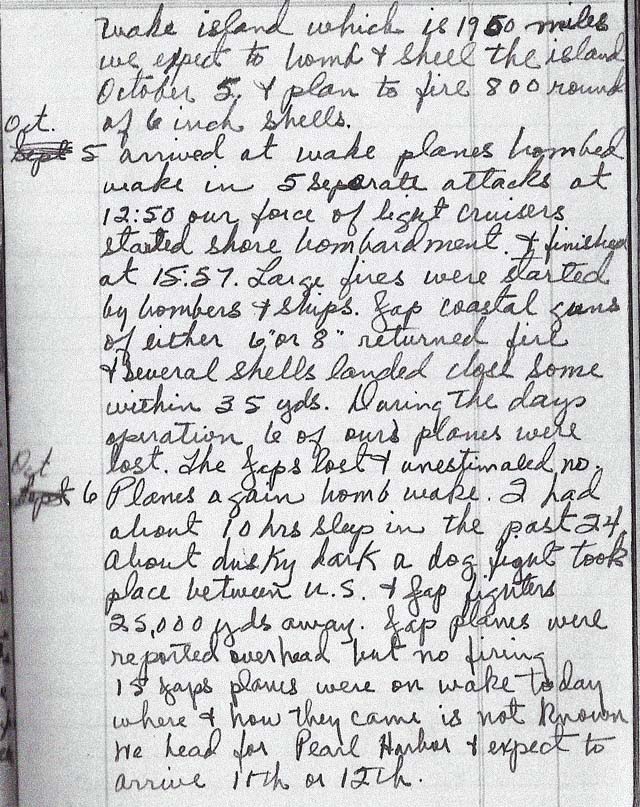 wake island which is 1950 miles
we expect to bomb & shell the island
October 5. & plan to fire 800 round
of 6 inch shells.
Oct.
Sept 5 arrived at wake planes bombed
wake in 5 seperate attacks at
12:50 our force of light cruisers
started shore bombardment. & finished
at 15:57. Large fires were started
by bombers & ships. Jap coastal guns
of either 6" or 8" returned fire
& several shells landed close some
within 35 yds. During the days
operation 6 of ours planes were
lost. The Japs lost & unestimated no.
Oct
Sept 6 Planes again bomb wake. I had
about 10 hrs sleep in the past 24,
about dusky dark a dog fight took
place between U.S. & Jap fighters
25,000 yds away. Jap planes were
reported overhead but no firing
15 Japs planes were on wake today
where & how they came is not known
We head for Pearl Harbor & expect to
arrive 11th or 12th.